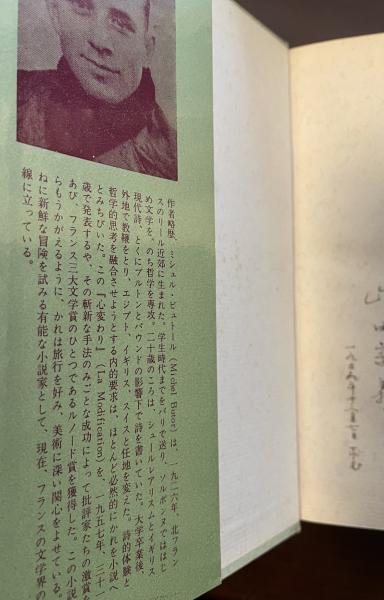 作者略歴、ミシェル・ビュトール(Michel Butor)は、一九二六年、北フラン
スのリール近郊に生まれた。学生時代までをパリで送り、ソルボンヌではじ
め文学を、のち哲学を専攻。二十歳のころは、シュールレアリスムとイギリス
現代詩、とくにブルトンとパウンドの影響下で詩を書いていた。大学卒業後、
外地で教鞭をとり、エジプト、イギリス、スイスと任地を変えた。詩的体験と
哲学的思考を融合させようとする内的要求は、ほとんど必然的にかれを小説へ
とみちびいた。この『心変わり』(La Modification)を、一九五七年、三十一
歳で発表するや、その斬新な手法のみごとな成功によって批評家たちの激賞を
あび、フランス三大文学賞のひとつであるルノード賞を獲得した。この小説か
らもうかがえるように、かれは旅行を好み、美術に深い関心をよせている。
ねに新鮮な冒険を試みる有能な小説家として、現在、フランスの文学界の
線に立っている。